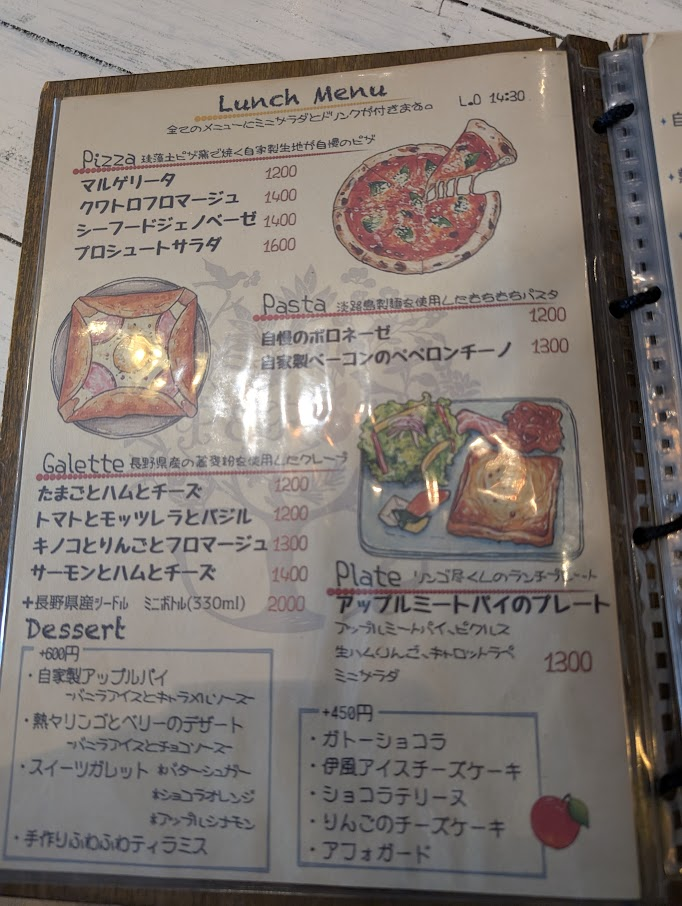 Lunch Menu
L.O 14:30
全てのメニューにミニサラダとドリンクが付きます。
Pizza 珪藻土ピザ窯で焼く自家製生地が自慢のピザ
マルゲリータ 1200
クワトロフロマージュ 1400
シーフードジェノベーゼ 1400
プロシュートサラダ 1600
Pasta 淡路島製麺を使用したもちもちパスタ
自慢のボロネーゼ 1200
自家製ベーコンのペペロンチーノ 1300
Galette 長野県産の蕎麦粉を使用したクレープ
たまごとハムとチーズ 1200
トマトとモッツレラとバジル 1200
キノコとりんごとフロマージュ 1300
サーモンとハムとチーズ 1400
+長野県産シードル ミニボトル(330ml) 2000
Plate リンゴ尽くしのランチプレート
アップルミートパイのプレート
アップルミートパイ、ピクルス
生ハムりんご、キャロットラペ
ミニサラダ
1300
Dessert
+600円
・自家製アップルパイ
~バニラアイスとキャラメルソース~
・熱々リンゴとベリーのデザート
~バニラアイスとチョコソース~
・スイーツガレット *バターシュガー
*ショコラオレンジ
*アップルシナモン
・手作りふわふわティラミス
+450円
・ガトーショコラ
・伊風アイスチーズケーキ
・ショコラテリーヌ
・りんごのチーズケーキ
・アフォガード